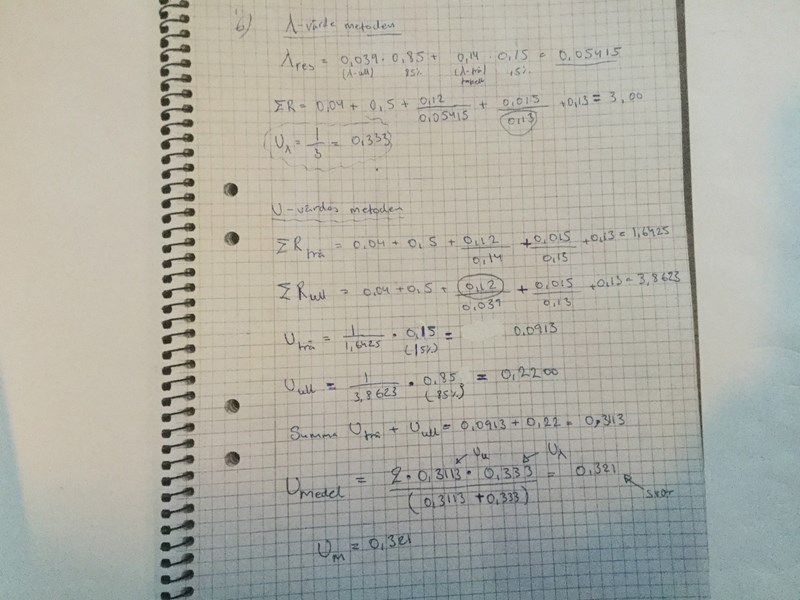 6) λ-värde metoden
λres = 0,039 · 0,85 + 0,14 · 0,15 = 0,05415
(λ-ull) 85% (λ-trä) 15%
ΣR = 0,04 + 0,5 + 0,12/0,05415 + 0,015/0,13 + 0,13 = 3,00
Uλ = 1/3 = 0,333
U-värdes metoden
ΣRträ = 0,04 + 0,5 + 0,12/0,14 + 0,015/0,13 + 0,13 = 1,6425
ΣRull = 0,04 + 0,5 + 0,12/0,039 + 0,015/0,13 + 0,13 = 3,8623
Uträ = 1/1,6425 · 0,15 = 0,0913
(15%)
Uull = 1/3,8623 · 0,85 = 0,2200
(85%)
Summa Uträ + Uull = 0,0913 + 0,22 = 0,3113
Uu Uλ
Umedel = 2 · 0,3113 · 0,333/(0,3113 + 0,333) = 0,321
svar
UM = 0,321